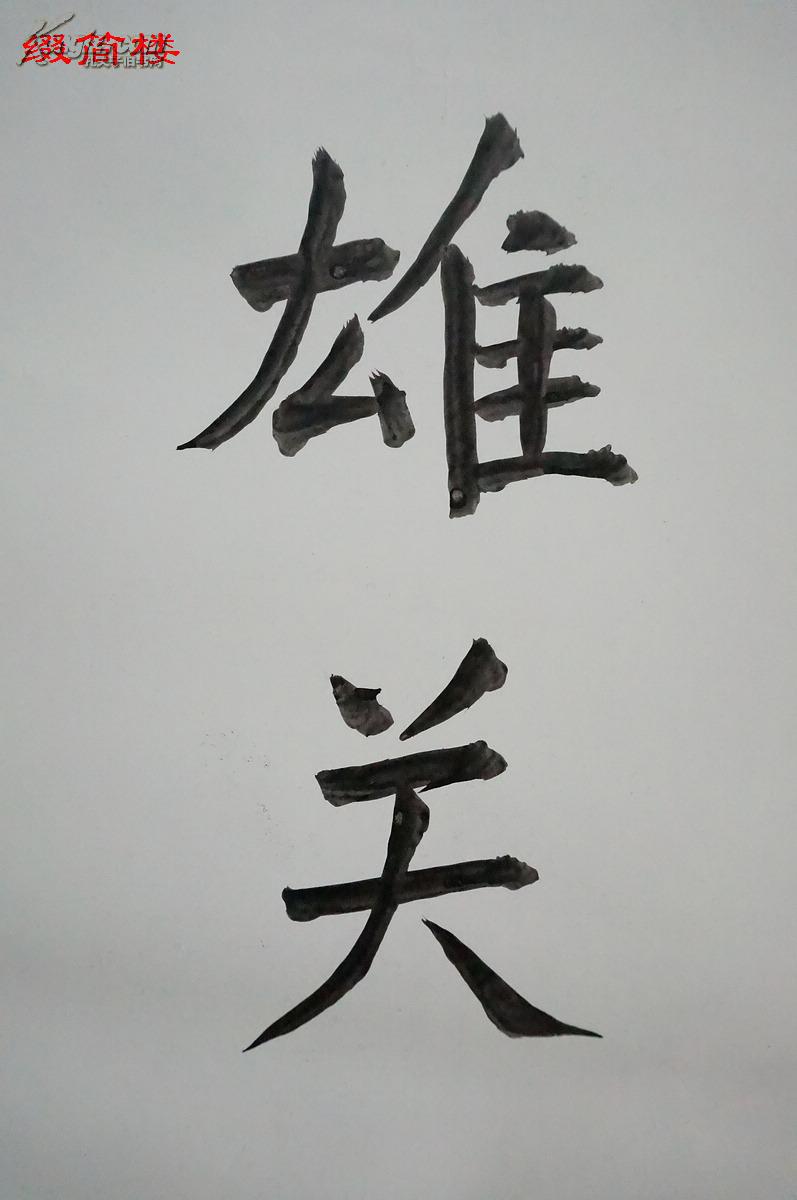 缀脩楼
雄
关